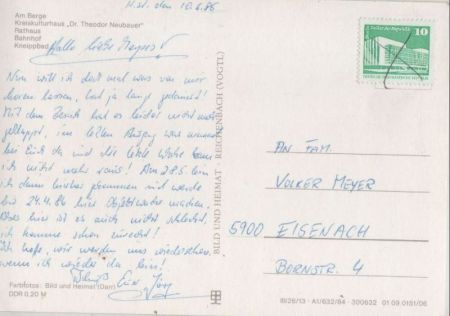 H.st. den 10.6.86
Am Berge
Kreiskulturhaus „Dr. Theodor Neubauer"
Rathaus
Bahnhof
Kneippbad
Hallo liebe Meyers!
Nun will ich doch mal was von mir
hören lassen, hat ja lang gedauert!
Mit dem Besuch hat es leider nicht mehr
geklappt, im letzten Ausgang war
bei Euch da und die letzte Woche kam
ich nicht mehr raus! Am 28.5. bin
ich dann hierher gekommen und werde
bis 24.4. hier machen.
Aber hier ist es auch nicht schlecht,
ich komme schon zurecht!
Ich hoffe, wir werden uns wiedersehen,
wenn ich wieder da bin!
Tschüß Euer
Farbfotos: Bild und Heimat (Darr)
DDR 0,20 M
BILD UND HEIMAT · REICHENBACH (VOGTL)
10
AN FAM.
VOLKER MEYER
5900 EISENACH
BORNSTR. 4
III/26/13 · A1/632/84 · 300632 01 09 0151/06